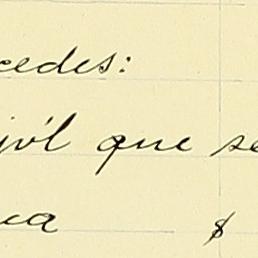 cedes:
jol que se
ea $